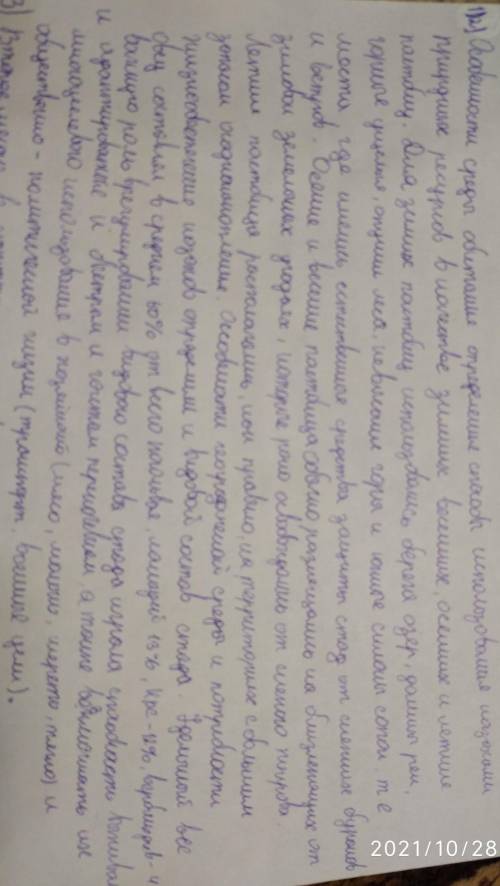 12) Особенности среды обитания определение способ использования казахами
природных ресурсов в качестве зимних весенних, осенних и летние
пастбищ. Для зимних пастбищ использовались берега озёр, долины рек,
горные ущелья, опушки леса, невысокие горы и южные склоны сопок т. е
места, где имелись естественные средства защиты стад от снежных буранов
и ветров. Осенние и весенние пастбища обычно размещались на близлежащих от
зимовки земельных угодьях, которые рано освобождались от снежного покрова.
Летние пастбища располагались, как правило, на территориях с большим
запасом Особенности природной среды и потребности
казахов определяли и видовой состав стада. Удельный вес
овец составлял в среднем 60% от всего поголовья, лошадей 13%, крс-12%, верблюдов-4
важную роль в регулировании видового состава стада играла способность
и и быстрым и частым перегонам, а также возможность их
многоцелевого использования в хозяйстве (мясо, молоко, шерсть, тягло) и
общественно-политической жизни (транспорт. военные цели).
3)
2021/10/28